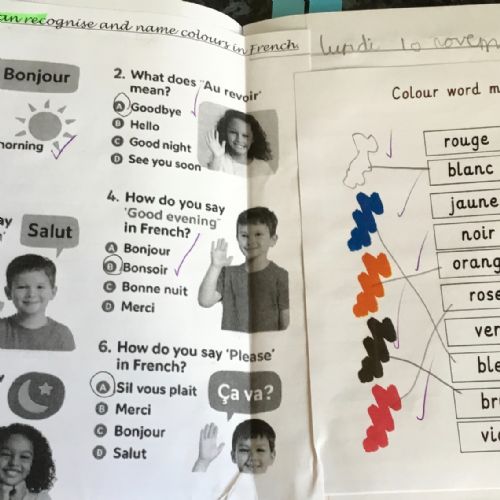 an recognise and name colours in French.
Bonjour
morning
ay
Salut
ay
2. What does "Au revoir'
mean?
A Goodbye
B Hello
C Good night
D See you soon
4. How do you say
'Good evening"
in French?
A Bonjour
B Bonsoir
C Bonne nuit
D Merci
6. How do you say 'Please'
in French?
A Sil vous plait
B Merci
C Bonjour
D Salut
Ça va?
lundi 10 novem
Colour word m
rouge
blanc
jaune
noir
orang
rose
ver
ble
bru
vio